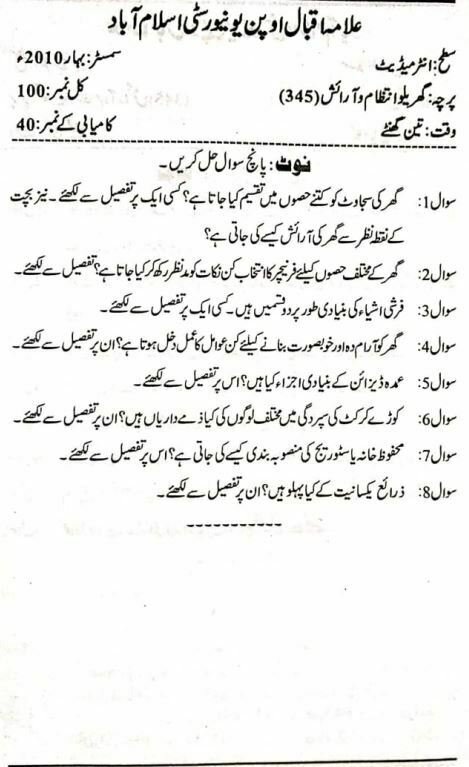 علامہ اقبال اوپن یونیورسٹی اسلام آباد
سطح: انٹرمیڈیٹ سمسٹر: بہار 2010ء
پرچہ: گھریلو انتظام و آرائش (345) کل نمبر: 100
وقت: تین گھنٹے کامیابی کے نمبر: 40
نوٹ: پانچ سوال حل کریں۔
سوال1: گھر کی سجاوٹ کو کتنے حصوں میں تقسیم کیا جاتا ہے؟ کسی ایک پر تفصیل سے لکھئے۔ نیز بچت
کے نقطہ نظر سے گھر کی آرائش کیسے کی جاتی ہے؟
سوال2: گھر کے مختلف حصوں کیلئے فرنیچر کا انتخاب کن نکات کو مدنظر رکھ کر کیا جاتا ہے؟ تفصیل سے لکھئے۔
سوال3: فرشی اشیاء کی بنیادی طور پر دو قسمیں ہیں۔ کسی ایک پر تفصیل سے لکھئے۔
سوال4: گھر کو آرام دہ اور خوبصورت بنانے کیلئے کن عوامل کا عمل دخل ہوتا ہے؟ ان پر تفصیل سے لکھئے۔
سوال5: عمدہ ڈیزائن کے بنیادی اجزاء کیا ہیں؟ اس پر تفصیل سے لکھئے۔
سوال6: کوڑے کرکٹ کی سپردگی میں مختلف لوگوں کی کیا ذمے داریاں ہیں؟ ان پر تفصیل سے لکھئے۔
سوال7: محفوظ خانہ یا سٹوریج کی منصوبہ بندی کیسے کی جاتی ہے؟ اس پر تفصیل سے لکھئے۔
سوال8: ذرائع یکسانیت کے کیا پہلو ہیں؟ ان پر تفصیل سے لکھئے۔